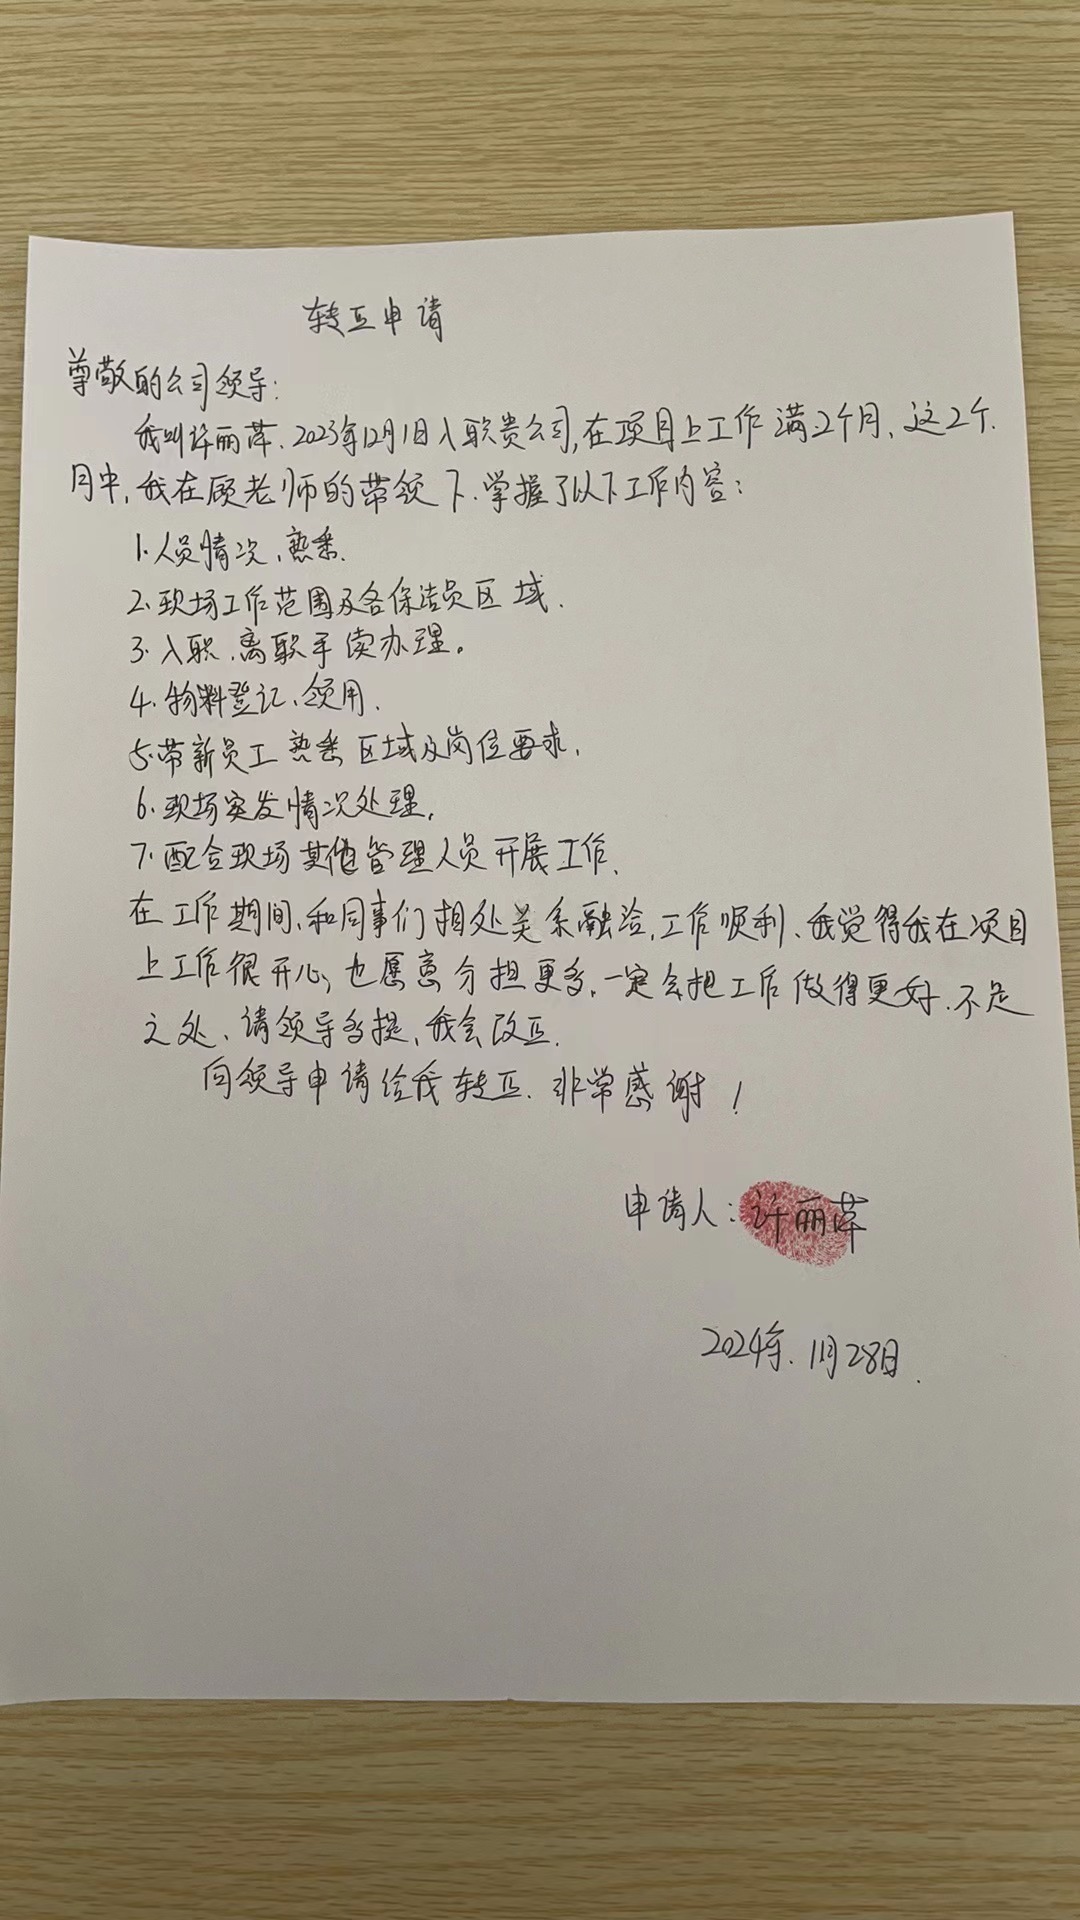 转正申请
尊敬的公司领导:
我叫许丽萍、2023年12月1日入职贵公司,在项目上工作满2个月、这2个
月中,我在顾老师的带领下.掌握了以下工作内容:
1.人员情况、熟悉.
2.现场工作范围及各保洁员区域.
3.入职、离职手续办理。
4.物料登记、领用.
5.带新员工熟悉区域及岗位要求.
6.现场突发情况处理.
7.配合现场其他管理人员开展工作.
在工作期间、和同事们相处关系融洽,工作顺利、我觉得我在项目
上工作很开心,也愿意分担更多,一定会把工作做得更好.不足
之处、请领导多提,我会改正.
向领导申请给我转正.非常感谢!
申请人:许丽萍
2024年.11月28日.